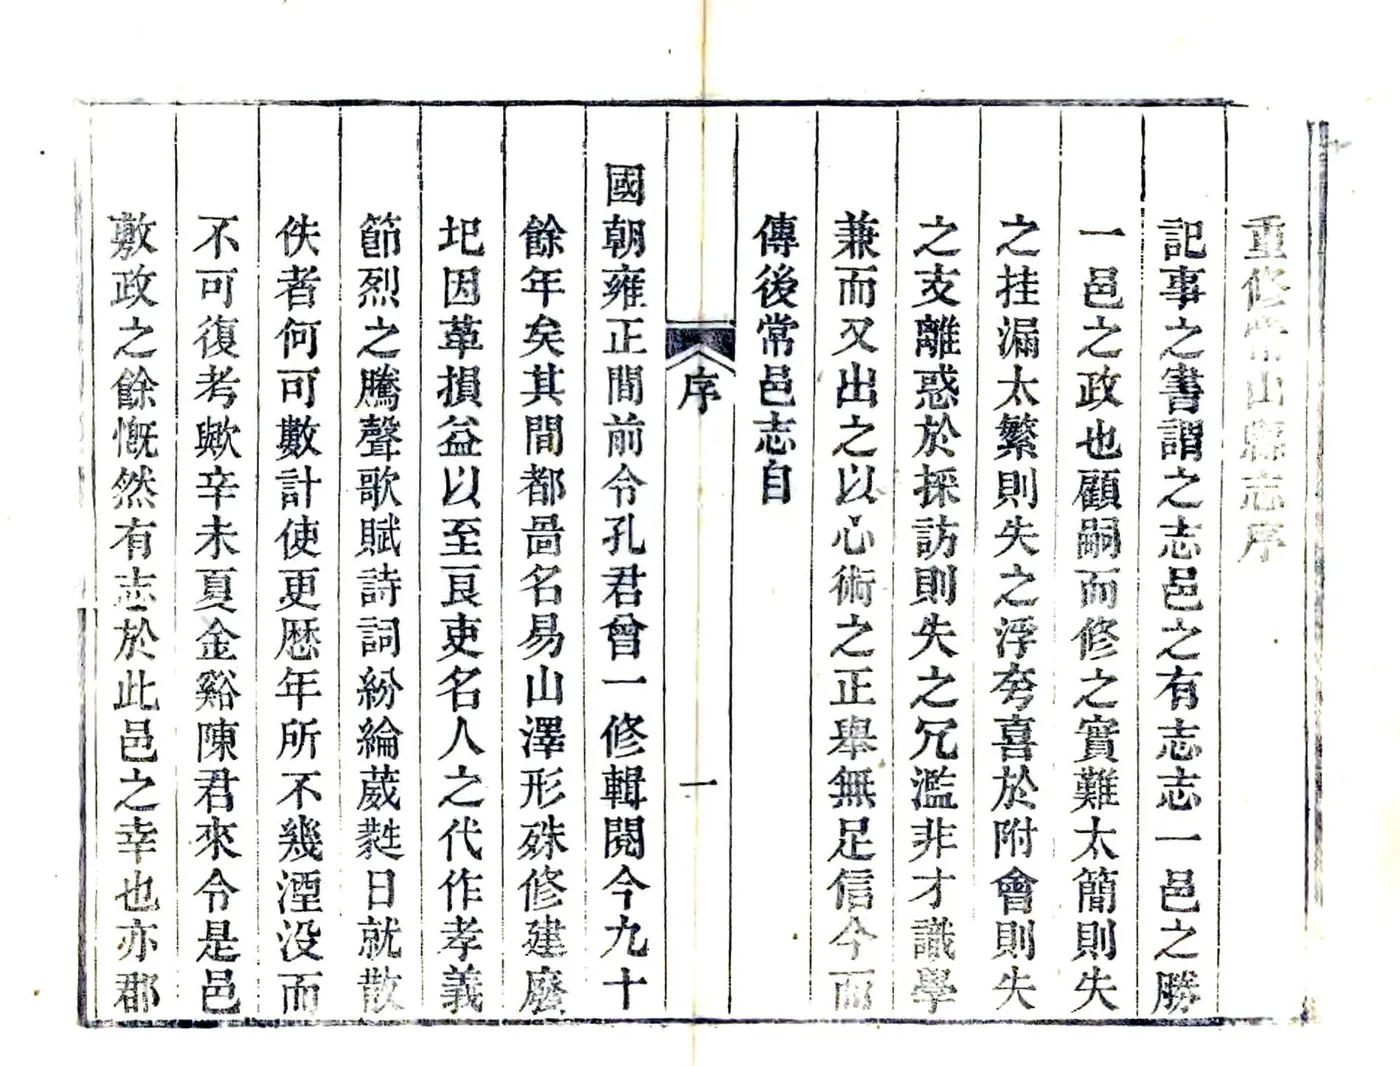 重修常山縣志序
記事之書謂之志邑之有志志一邑之勝
一邑之政也顧嗣而修之實難太簡則失
之挂漏太繁則失之浮夸喜於附會則失
之支離惑於採訪則失之冗濫非才識學
兼而又出之以心術之正舉無足信今而
傳後常邑志自
序
一
國朝雍正間前令孔君曾一修輯閱今九十
餘年矣其間都啚名易山澤形殊修建廢
圮因革損益以至良吏名人之代作孝義
節烈之騰聲歌賦詩詞紛綸葳蕤日就散
佚者何可數計使更歷年所不幾湮没而
不可復考歟辛未夏金谿陳君來令是邑
敷政之餘慨然有志於此邑之幸也亦郡